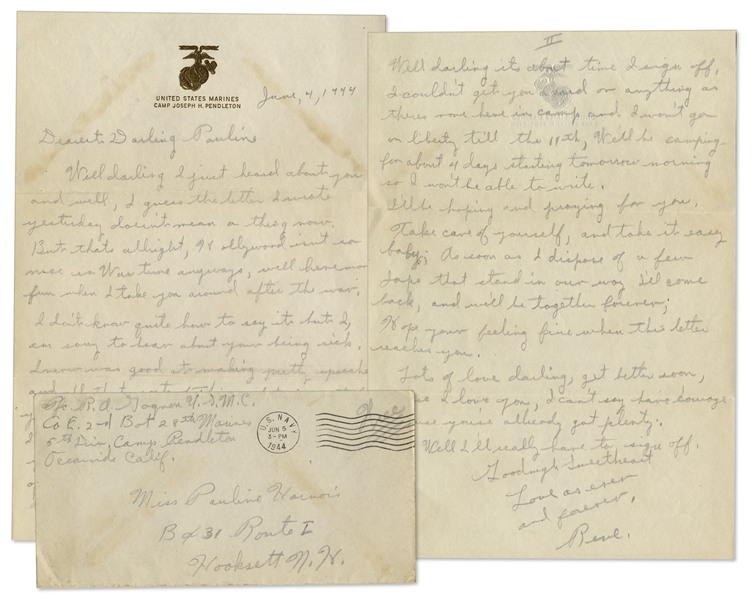 UNITED STATES MARINES
CAMP JOSEPH H. PENDLETON
June, 4, 1944
Dearest Darling Pauline
Well darling I just heard about you
and well, I guess the letter I wrote
yesterday doesn't mean a thing now.
But thats allright, Hollywood isn't so
nice in War time anyways, we'll have more
fun when I take you around after the war.
I don't know quite how to say it but I,
am sorry to hear about your being sick.
I never was good at making pretty speeches
II
Well darling its about time I sign off,
I couldn't get you a card or anything as
theres none here in camp and I won't go
on liberty till the 11th, We'll be camping
for about 4 days starting tomorrow morning
so I won't be able to write.
I'll be hoping and praying for you.
Take care of yourself, and take it easy
baby; As soon as I dispose of a few
Japs that stand in our way I'll come
back, and we'll be together forever;
Hope your feeling fine when this letter
reaches you.
Lots of love darling, get better soon,
I love you, I can't say have courage
you've already got plenty.
Well I'll really have to sign off.
Goodnight Sweetheart
Love as ever
and forever,
Rene.
Pfc. R.A. Gagnon U.S.M.C.
Co E. 2nd Bn 28th Marines
5th Div, Camp Pendleton
Oceanside Calif.
U.S. NAVY
JUN 5
3-PM
1944
Free
Miss Pauline Harnois
Box 31 Route I
Hooksett N.H.